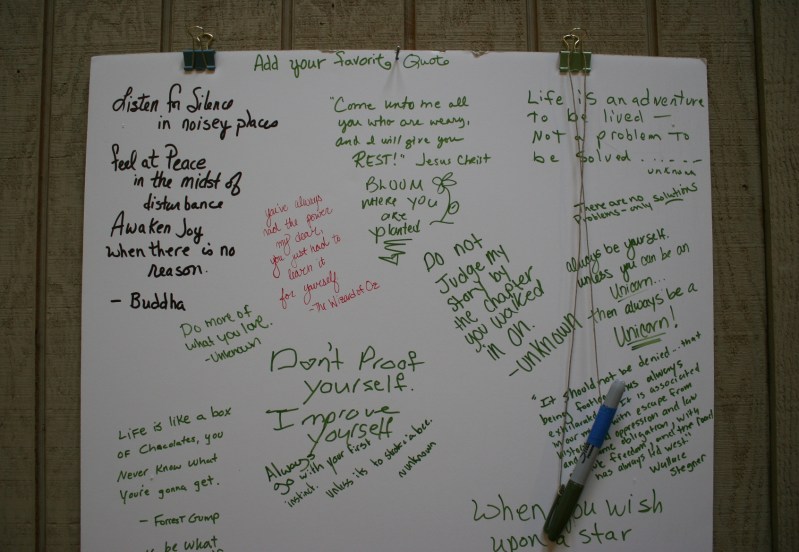 Add your favorite Quote
Listen for Silence
in noisey places
Feel at Peace
in the midst of
disturbance
Awaken Joy
when there is no
reason.
- Buddha
"Come unto me all
you who are weary,
and I will give you
REST!" Jesus Christ
BLOOM
WHERE YOU
are
planted
Life is an adventure
to be lived —
Not a problem to
be solved......
unknown
There are no
Problems - only solutions
you've always
had the power
my dear,
you just had to
learn it
for yourself
- The Wizard of Oz
Do not
Judge my
story by
the chapter
you walked
in on.
- unknown
always be yourself.
unless you can be an
Unicorn...
then always be a
Unicorn!
Do more of
what you love.
- unknown
Don't Proof
yourself.
Improve
yourself
Always
go with your first
instinct. unless its to
unknown
"It should not be denied... that
being footloose has always
exhilarated It is associated
our with escape from
oppression and law
and obligation, with
freedom, and the road
has always led west"
Wallace
Stegner
Life is like a box
of Chocolates, you
Never Know What
You're gonna get.
- Forrest Gump
When you wish
upon a star
be what